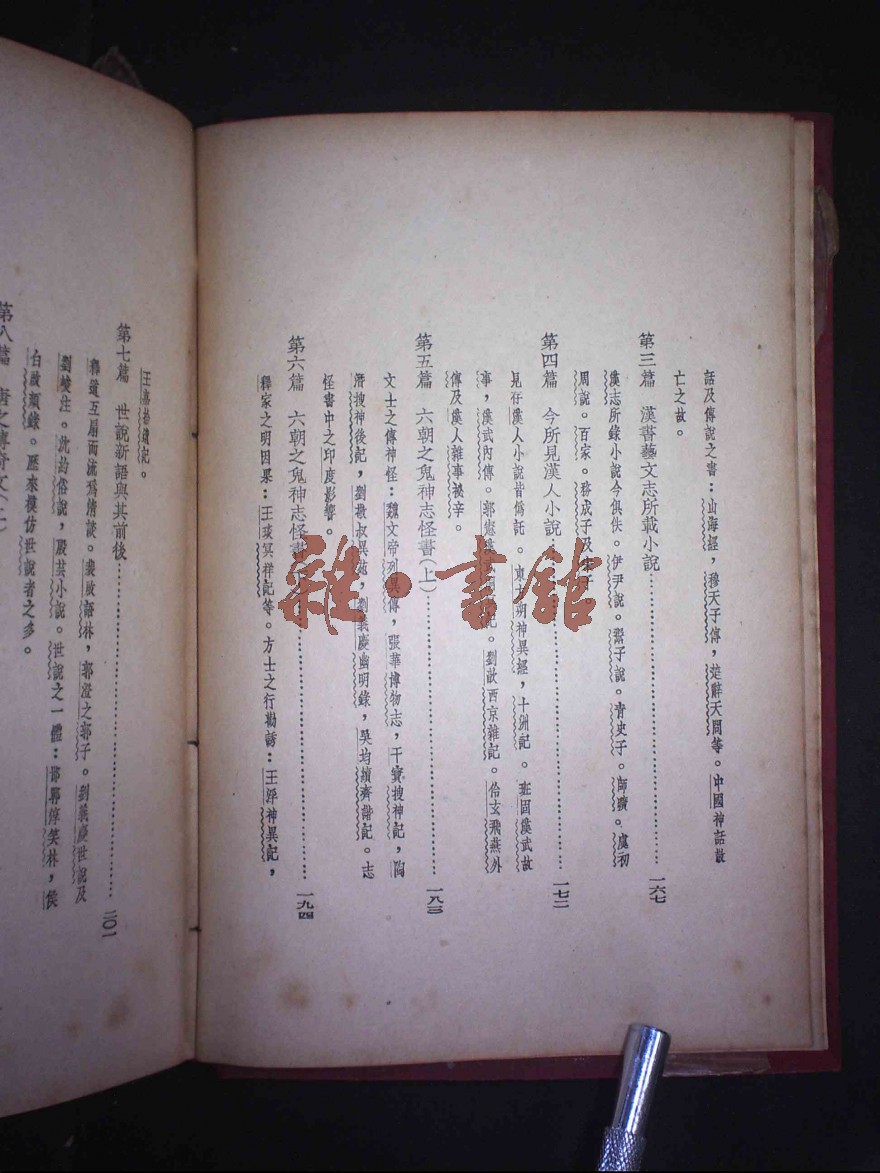 話及傳說之書：山海經，穆天子傳，楚辭天問等。中國神話散
亡之故。
第三篇　漢書藝文志所載小說…………一六七
漢志所錄小說今俱佚。伊尹說。鬻子說。青史子。師曠。虞初
周說。百家。務成子及
第四篇　今所見漢人小說…………一七二
見存漢人小說皆僞託。東方朔神異經，十洲記。班固漢武故
事，漢武內傳。郭憲漢武洞冥記。劉歆西京雜記。伶玄飛燕外
傳及漢人雜事祕辛。
第五篇　六朝之鬼神志怪書（上）…………一八三
文士之傳神怪：魏文帝列異傳，張華博物志，干寶搜神記，陶
潛搜神後記，劉敬叔異苑，劉義慶幽明錄，吳均續齊諧記。志
怪書中之印度影響。
第六篇　六朝之鬼神志怪書…………一九四
釋家之明因果：王琰冥祥記等。方士之行勸誘：王浮神異記，
王嘉拾遺記。
第七篇　世說新語與其前後…………二〇一
釋道互扇而流爲清談。裴啟語林，郭澄之郭子。劉義慶世說及
劉峻注。沈約俗說，殷芸小說。世說之一體：邯鄲淳笑林，侯
白啟顏錄。歷來模仿世說者之多。
第八篇　唐之傳奇文（上）
雜·書館